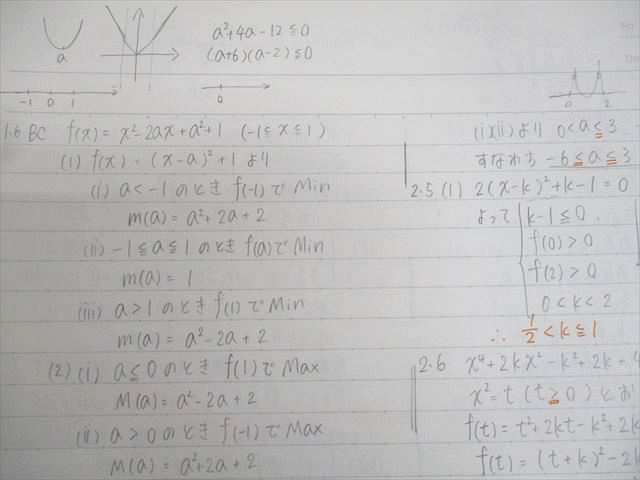 a
a²+4a-12≦0
(a+6)(a-2)≦0
-1 0 1
0
0 2
1.6 BC f(x)=x²-2ax+a²+1 (-1≦x≦1)
(1) f(x)=(x-a)²+1 より
(i) a<-1 のとき f(-1)でMin
m(a)=a²+2a+2
(ii) -1≦a≦1 のとき f(a)でMin
m(a)=1
(iii) a>1 のとき f(1)でMin
m(a)=a²-2a+2
(2) (i) a≦0 のとき f(1)でMax
M(a)=a²-2a+2
(ii) a>0 のとき f(-1)でMax
M(a)=a²+2a+2
(i)(ii)より 0<a≦3
すなわち -6≦a≦3
2.5 (1) 2(x-k)²+k-1=0
よって k-1≦0
f(0)>0
f(2)>0
0<k<2
∴ 1/2<k≦1
2.6 x⁴+2kx²-k²+2k+4
x²=t (t≧0) とお
f(t)=t²+2kt-k²+2k
f(t)=(t+k)²-2k